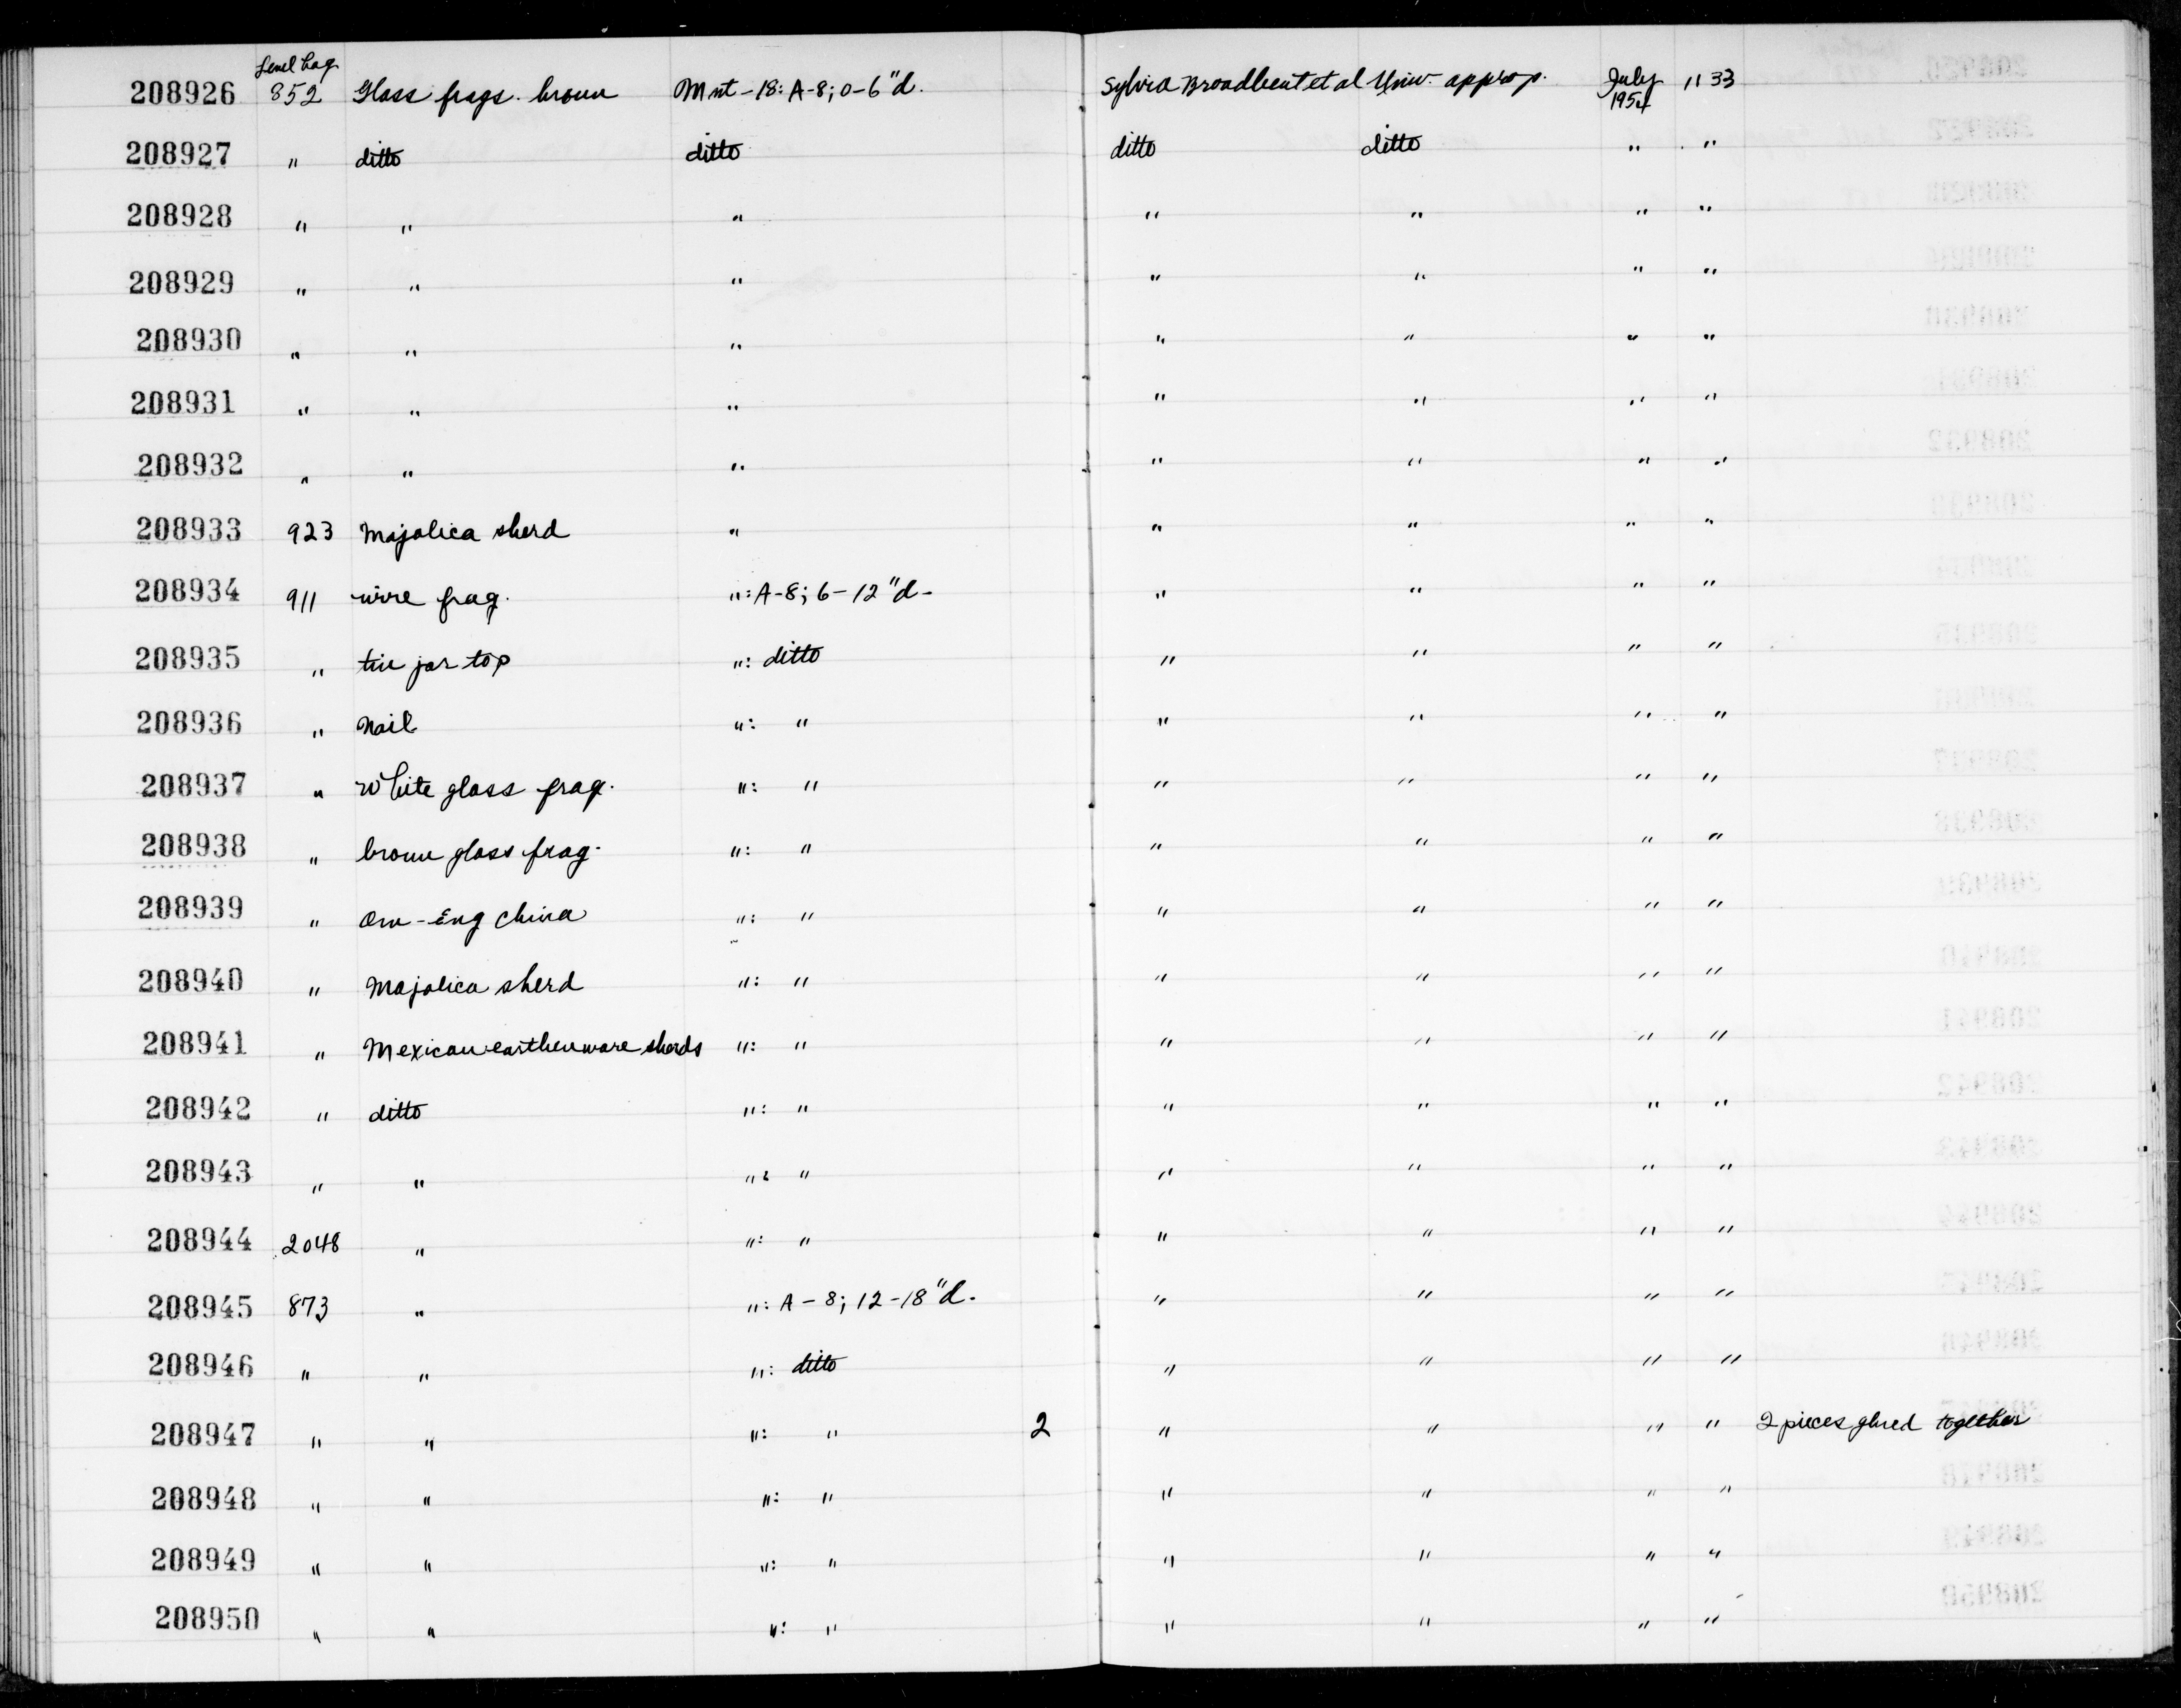 Level bag
208926 852 Glass frags. brown Mnt-18: A-8; 0-6"d. Sylvia Broadbent et al Univ. approp. July 1954 1133
208927 " ditto ditto ditto ditto " "
208928 " " " " " " "
208929 " " " " " " "
208930 " " " " " " "
208931 " " " " " " "
208932 " " " " " " "
208933 923 Majolica sherd " " " " "
208934 911 wire frag. ": A-8; 6-12"d- " " " "
208935 " tin jar top ": ditto " " " "
208936 " Nail ": " " " " "
208937 " White glass frag. ": " " " " "
208938 " brown glass frag. ": " " " " "
208939 " Am-Eng china ": " " " " "
208940 " Majolica sherd ": " " " " "
208941 " Mexican earthenware sherds ": " " " " "
208942 " ditto ": " " " " "
208943 " " ": " " " " "
208944 2048 " ": " " " " "
208945 873 " ": A-8; 12-18"d. " " " "
208946 " " ": ditto " " " "
208947 " " ": " 2 " " " " 2 pieces glued together
208948 " " ": " " " " "
208949 " " ": " " " " "
208950 " " ": " " " " "